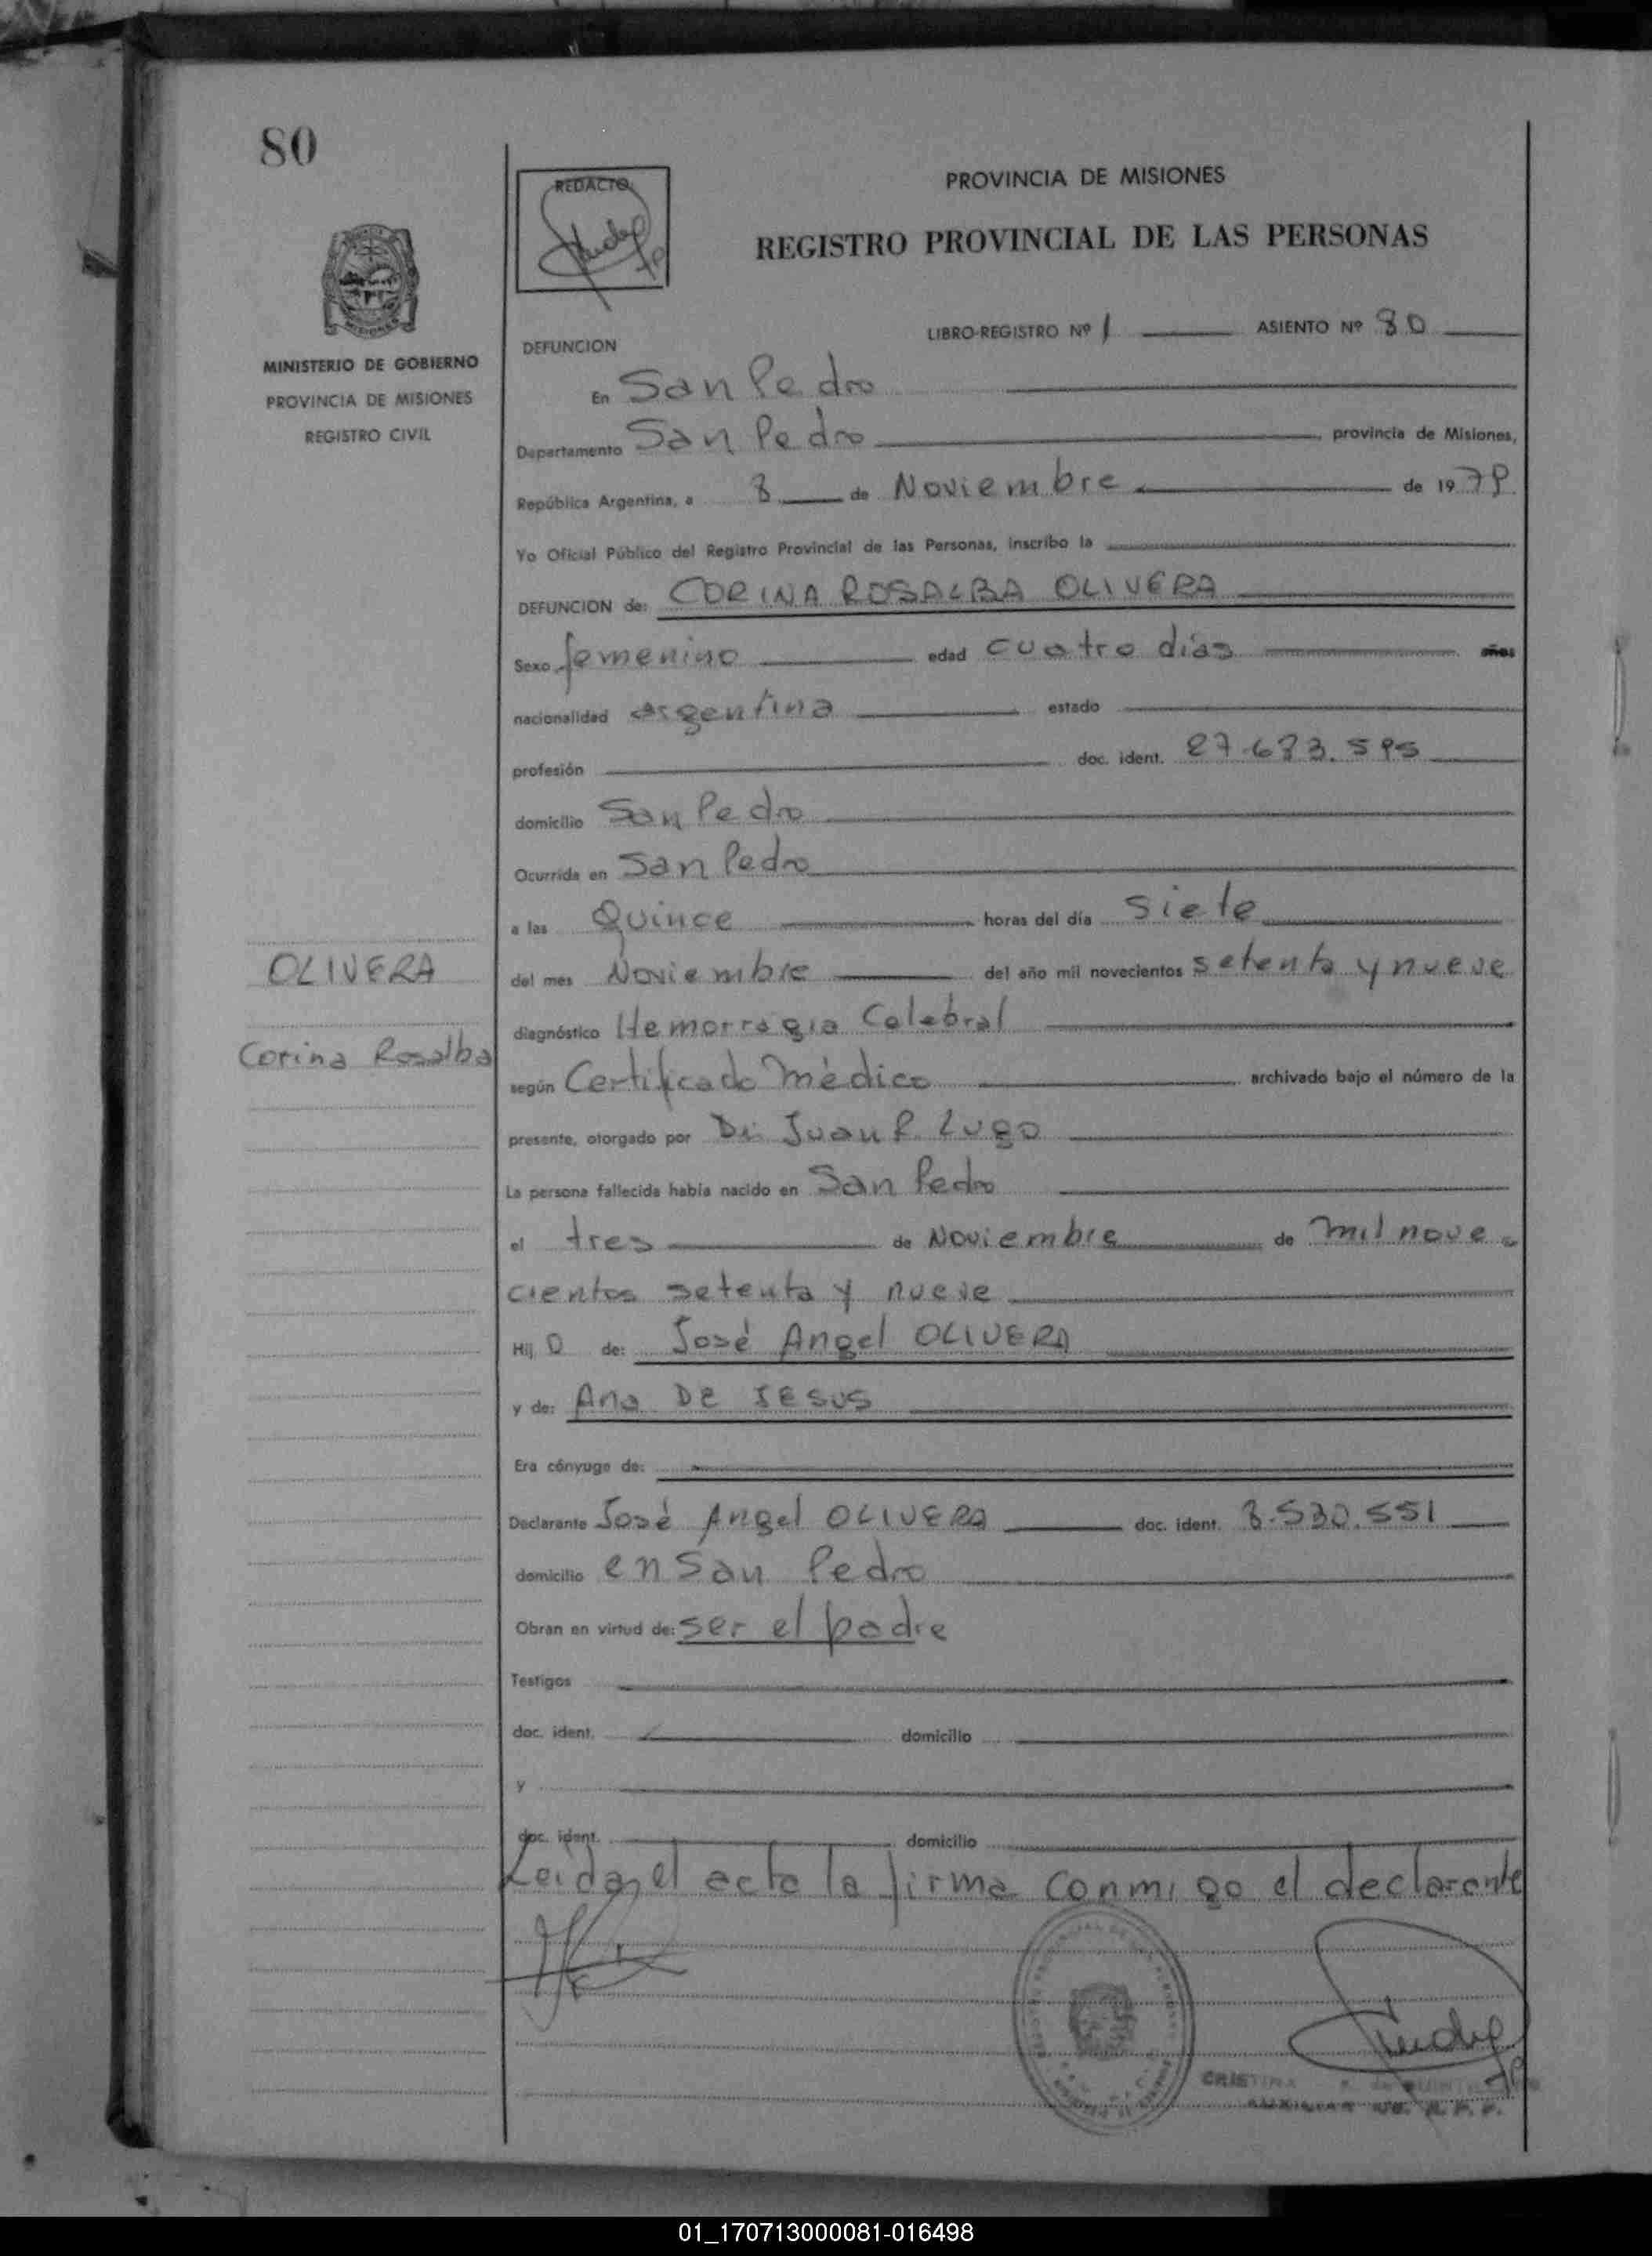 80
REDACTO
PROVINCIA DE MISIONES
REGISTRO PROVINCIAL DE LAS PERSONAS
MINISTERIO DE GOBIERNO
PROVINCIA DE MISIONES
REGISTRO CIVIL
LIBRO-REGISTRO Nº 1 ASIENTO Nº 80
DEFUNCION
En San Pedro
Departamento San Pedro provincia de Misiones,
República Argentina, a 8 de Noviembre de 1979
Yo Oficial Público del Registro Provincial de las Personas, inscribo la
DEFUNCION de: CORINA ROSALBA OLIVERA
Sexo femenino edad cuatro días años
nacionalidad argentina estado
profesión doc. ident. 27.683.595
domicilio San Pedro
Ocurrida en San Pedro
a las Quince horas del día Siete
OLIVERA
del mes Noviembre del año mil novecientos setenta y nueve
diagnóstico Hemorragia Celebral
Corina Rosalba
según Certificado Médico archivado bajo el número de la
presente, otorgado por Dr. Juan R. Lugo
La persona fallecida había nacido en San Pedro
el tres de Noviembre de mil nove
cientos setenta y nueve
Hij de: José Angel OLIVERA
y de: Ana DE JESUS
Era cónyuge de:
Declarante José Angel OLIVERA doc. ident. 8.530.551
domicilio en San Pedro
Obran en virtud de: ser el padre
Testigos
doc. ident. domicilio
y
doc. ident. domicilio
Leida el acta la firma conmigo el declarante
CRISTINA
AUXILIAR
01_170713000081-016498